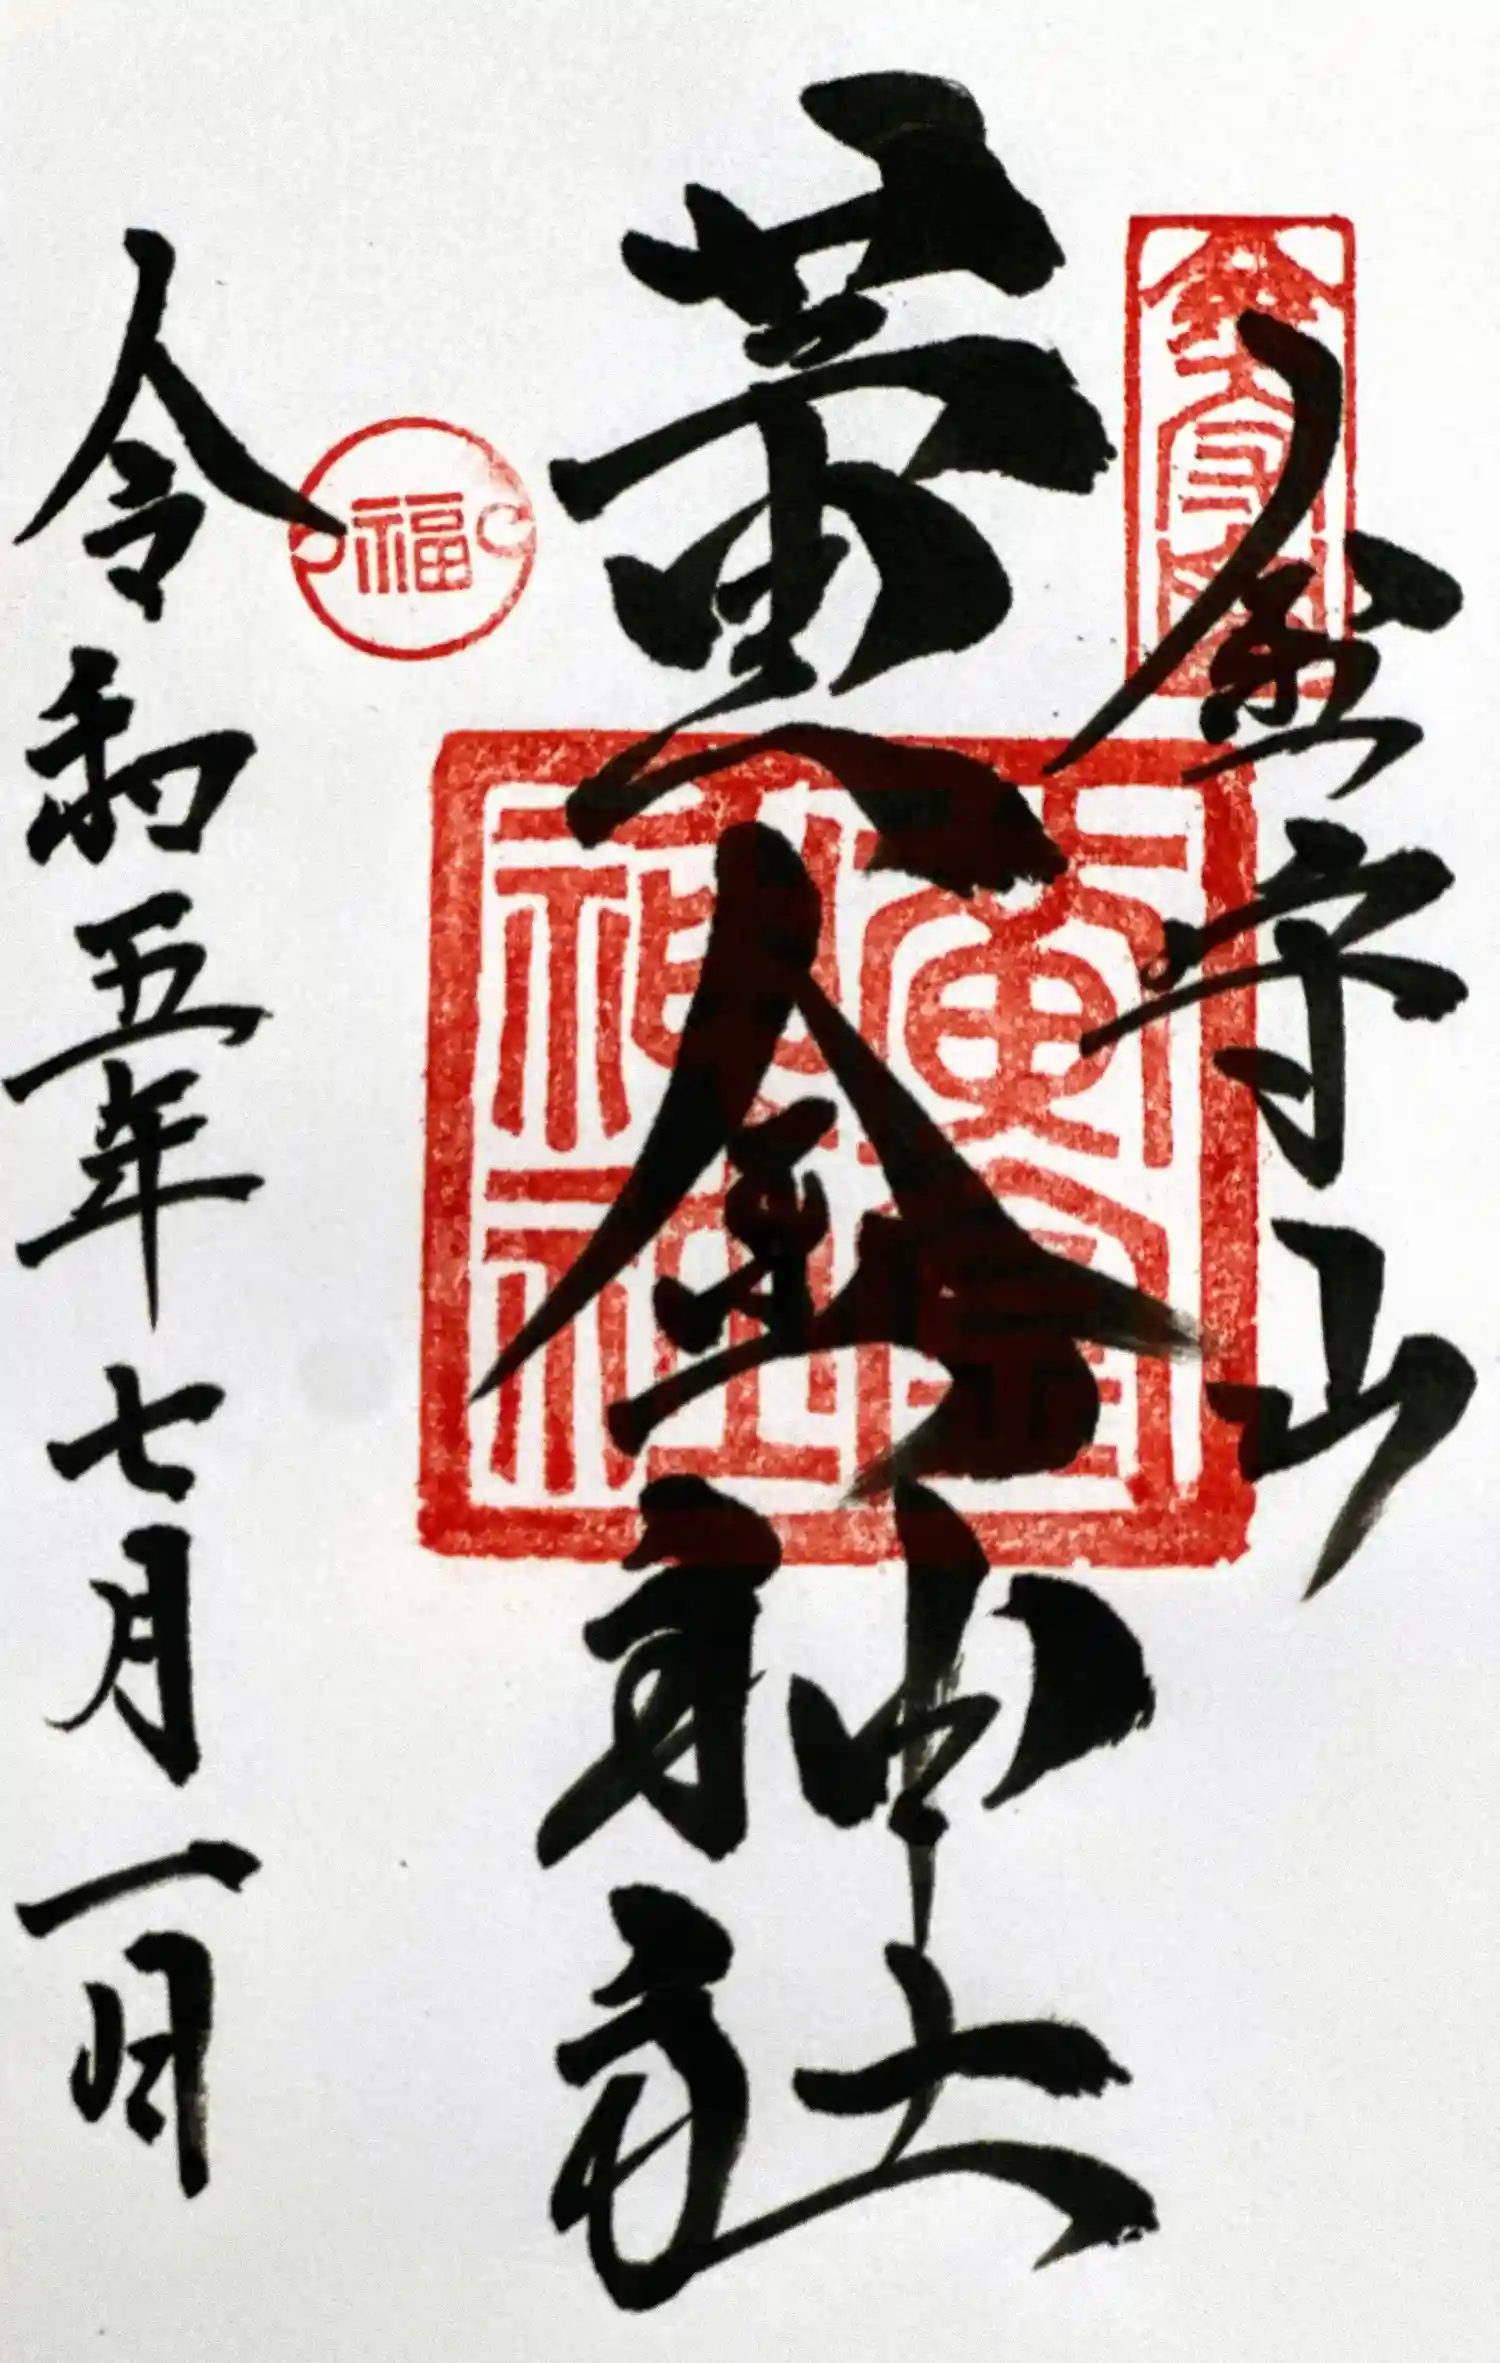 金守山
黄金神社
令和五年七月一日
金守山
黄金神社
福